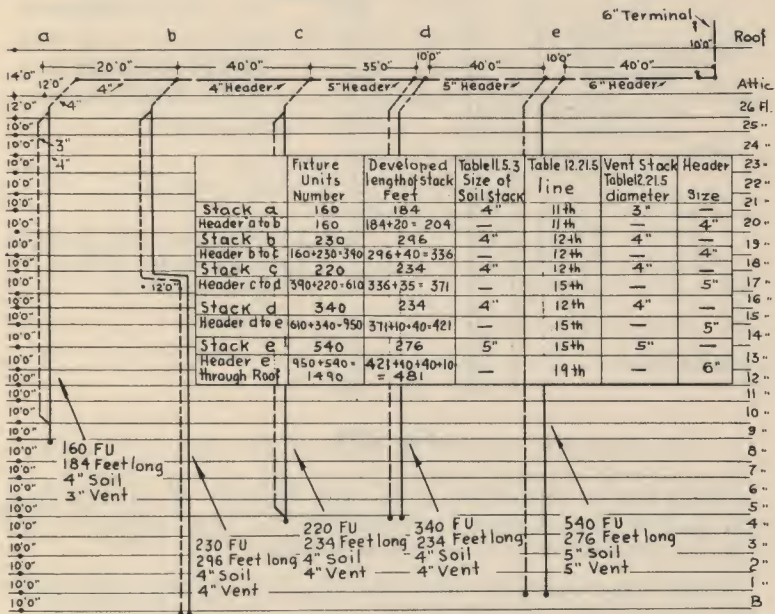 6" Terminal
a b c d e Roof
10'0"
10'0" 10'0"
20'0" 40'0" 35'0" 40'0" 40'0"
14'0"
12'0"
4" 4" Header 5" Header 5" Header 6" Header
Attic
12'0"
4"
26 Fl.
10'0"
25 "
10'0"
3"
24 "
10'0"
4"
23 "
10'0"
22 "
10'0"
21 "
10'0"
20 "
10'0"
19 "
10'0"
18 "
10'0"
17 "
10'0"
12'0"
16 "
10'0"
15 "
10'0"
14 "
10'0"
13 "
10'0"
12 "
10'0"
11 "
10'0"
10 "
10'0"
9 "
10'0"
8 "
10'0"
7 "
10'0"
6 "
10'0"
5 "
10'0"
4 "
10'0"
3 "
10'0"
2 "
10'0"
1 "
10'0"
B
Fixture Units Number
Developed length of stack Feet
Table 11.5.3 Size of Soil Stack
Table 12.21.5 line
Vent Stack Table 12.21.5 diameter
Header Size
Stack a 160 184 4" 11th 3" —
Header a to b 160 184+20=204 — 11th — 4"
Stack b 230 296 4" 12th 4" —
Header b to c 160+230=390 296+40=336 — 12th — 4"
Stack c 220 234 4" 12th 4" —
Header c to d 390+220=610 336+35=371 — 15th — 5"
Stack d 340 234 4" 12th 4"
Header d to e 610+340=950 371+10+40=421 — 15th — 5"
Stack e 540 276 5" 15th 5" —
Header e through Roof 950+540=1490 421+10+40+10=481 — 19th — 6"
160 FU
184 Feet long
4" Soil
3" Vent
230 FU
296 Feet long
4" Soil
4" Vent
220 FU
234 Feet long
4" Soil
4" Vent
340 FU
234 Feet long
4" Soil
4" Vent
540 FU
276 Feet long
5" Soil
5" Vent